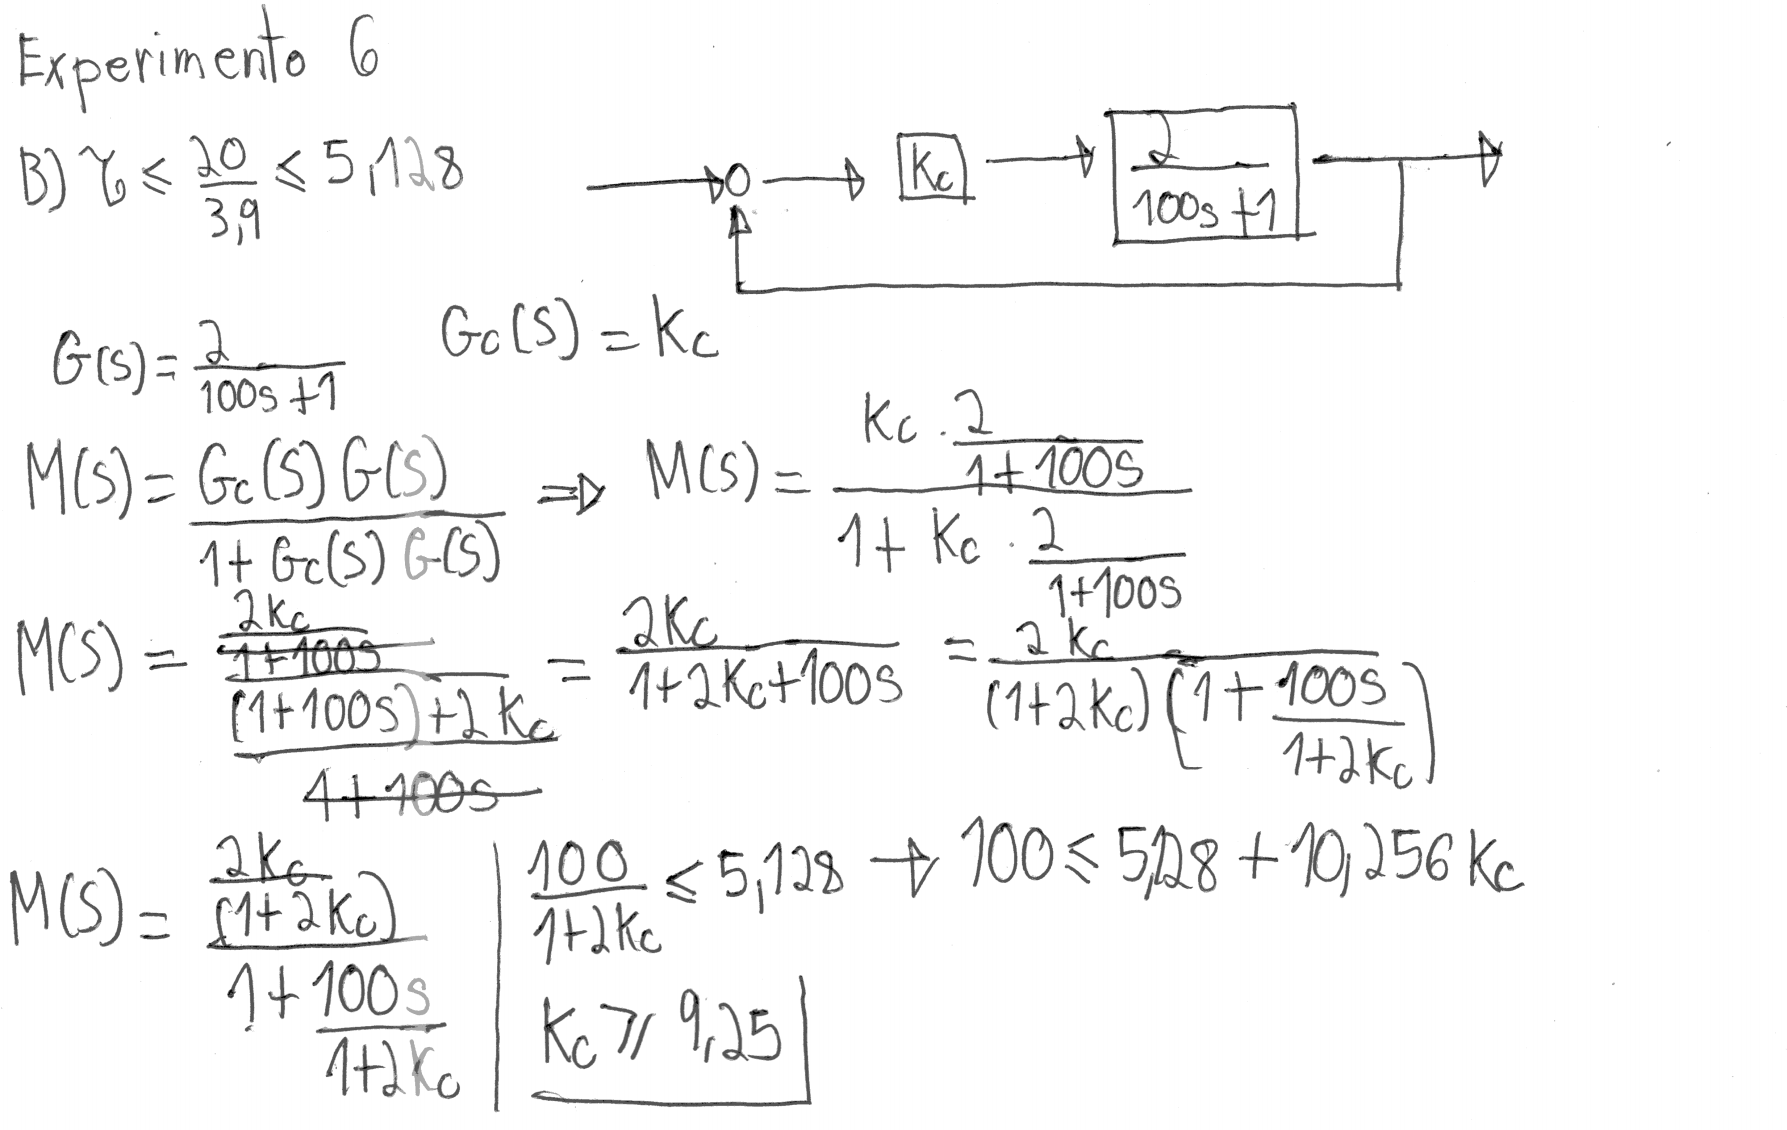 Experimento 6
B) τ ≤ 20/3,9 ≤ 5,128
Kc
2/(100s+1)
G(s) = 2/(100s+1)
Gc(S) = Kc
M(S) = Gc(S) G(S)/(1+Gc(S) G(S)) ⇒ M(S) = (Kc . 2/(1+100S))/(1+Kc . 2/(1+100S))
M(S) = (2Kc/(1+100S))/(((1+100S)+2Kc)/(1+100s)) = 2Kc/(1+2Kc+100s) = 2Kc/((1+2Kc)(1+100s/(1+2Kc)))
M(S) = (2Kc/(1+2Kc))/(1+100s/(1+2Kc))
100/(1+2Kc) ≤ 5,128 → 100 ≤ 5,128 + 10,256 Kc
Kc ≥ 9,25